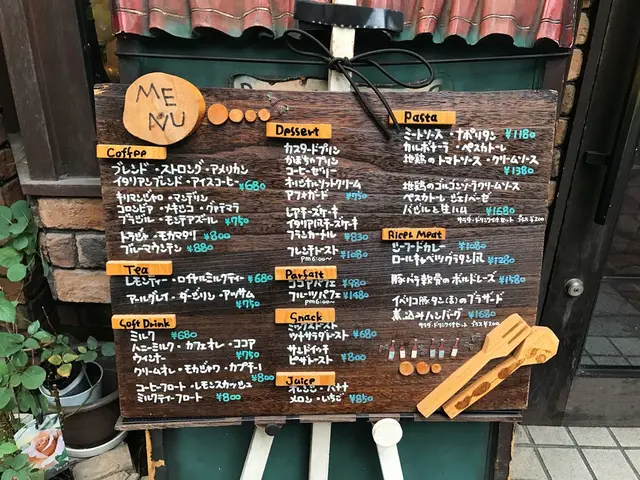 MENU
Coffee
ブレンド・ストロング・アメリカン
イタリアンブレンド・アイスコーヒー ¥680
キリマンジャロ・マンデリン
コロンビア・メキシコ・ガテマラ
ブラジル・モンテアズール ¥750
トラジャ・モカマタリ ¥800
ブルーマウンテン ¥880
Tea
レモンティー・ロイヤルミルクティー ¥680
アールグレイ・ダージリン・アッサム
¥750
Soft Drink
ミルク ¥680
ハニーミルク・カフェオレ・ココア
ウィンナー ¥750
クリームオレ・モカジャワ・カプチーノ
¥800
コーヒーフロート・レモンスカッシュ
ミルクティーフロート ¥800
Dessert
カスタードプリン
かぼちゃプリン
コーヒーゼリー
オリジナルソフトクリーム
アフォガード ¥750
レアチーズケーキ
イタリア風チーズケーキ
ブランカーナル ¥830
フレンチトースト ¥1080
PM6:00〜
Parfait
ココアパフェ ¥980
フルーツパフェ ¥1480
PM6:00〜
Snack
ミックストースト
ツナサラダトースト ¥680
サンドイッチ
ピザトースト ¥800
Juice
オレンジ・バナナ
メロン・いちご ¥850
Pasta
ミートソース・ナポリタン ¥1180
カルボナーラ・ペスカトーレ
地鶏のトマトソース・クリームソース
¥1380
地鶏のゴルゴンゾーラクリームソース
ペスカトーレ ジェノベーゼ
バジルと生ハム ¥1680
サラダ・ドリンク付セット プラス ¥200
Rice & Meat
ビーフカレー ¥1080
ロールキャベツグラタン風 ¥1280
豚バラ軟骨のボルドレーズ ¥1580
イベリコ豚タン(舌)のブラザード
煮込みハンバーグ ¥1680
サラダ・ドリンク付セット プラス ¥200